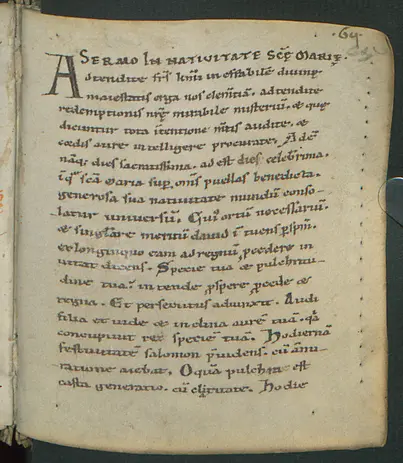 ·69·
SERMO IN NATIVITATE SCĘ MARIĘ.
Adtendite frs̄ kmi in effabilē diuinę
maiestatis erga nos clemtiā. adtendite
redemptionis nrę mirabile misteriū. & quę
dicuntur tota intentione mtis audite. &
cordis aure intelligere procurate. Adē
nāq; dies sacratissima. ad est dies celeberrima.
in qͣ scā Maria sup̄ om̄s puellas benedicta.
generosa sua natiuitate mundū conso-
latur uniuersū. Cuiꝰ ortū necessariū.
& singulare meritū dauid in tuens p̄ sp̄m.
ex longinquo eam ad regnū p̄cedere in
uitat dicens. Specie tua & pulchritu-
dine tua in tende p̄spere p̄cede &
regna. Et persecutus adiunxit. Audi
filia et uide & inclina aurē tuā. qͣ
concupiuit rex speciē tuā. Hodiernā
festiuitatē salomon p̄uidens. cū ammi-
ratione aiebat. O quā pulchra est
casta generatio. cū claritate. Hodie